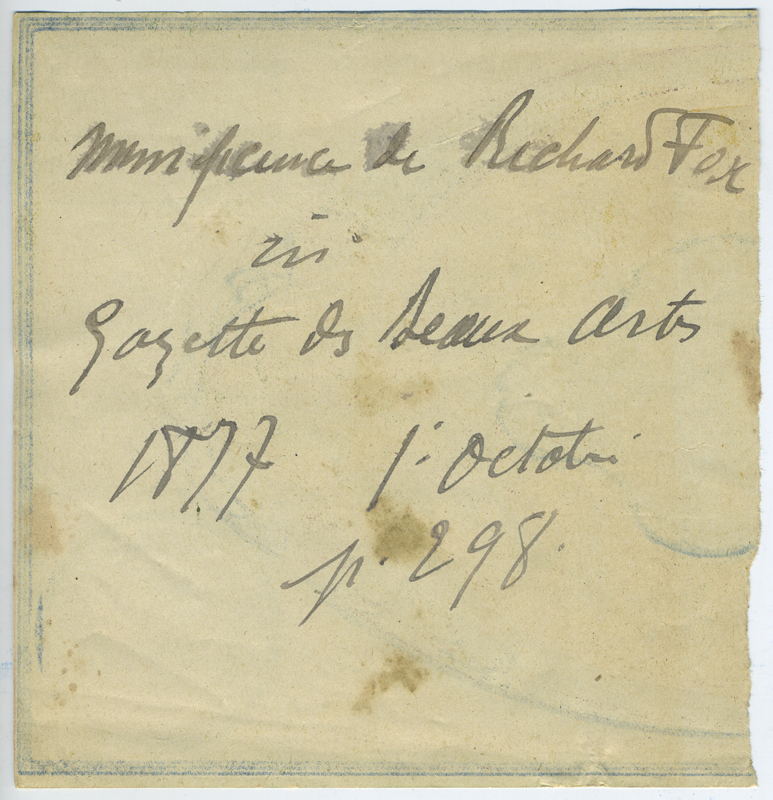 Munificence de Richard Fox
in
Gazette des Beaux Arts
1877 1r Octobre
p. 298.